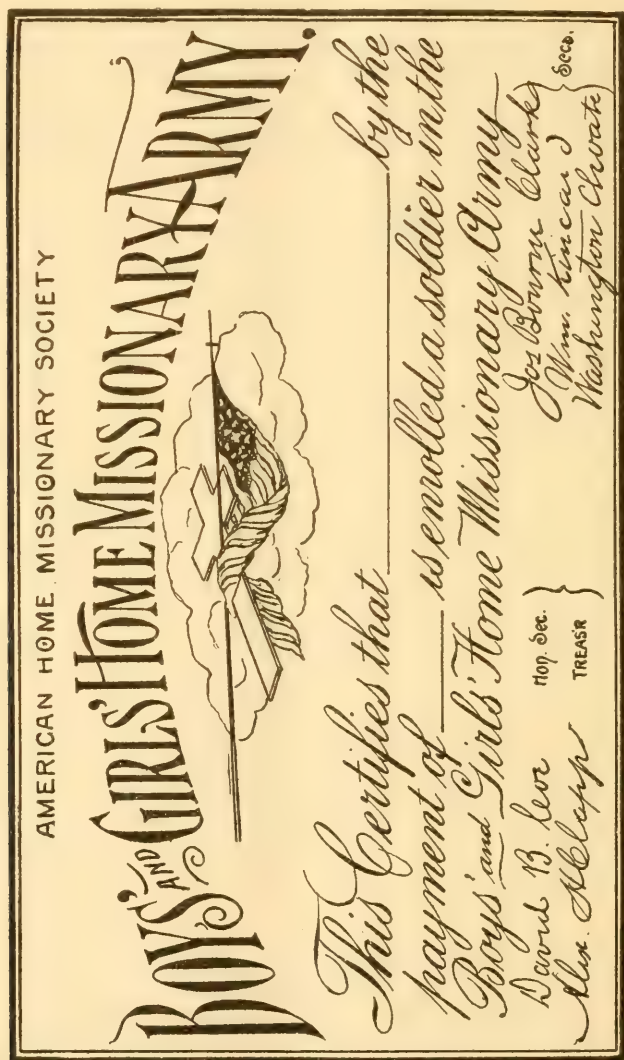 AMERICAN HOME MISSIONARY SOCIETY
BOYS' AND GIRLS' HOME MISSIONARY ARMY.
This Certifies that ____________ by the
payment of ________ is enrolled a soldier in the
Boys' and Girls' Home Missionary Army
David B. Coe Hon. Sec.
Alex. H Clapp TREAS'R
Jos Bourne Clark
Wm. Kincaid
Washington Choate
Secs.